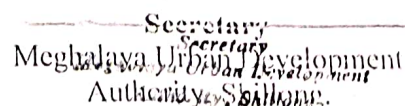 Secretary
Secretary
Meghalaya Urban Development
Urban Development
Authority, Shillong.